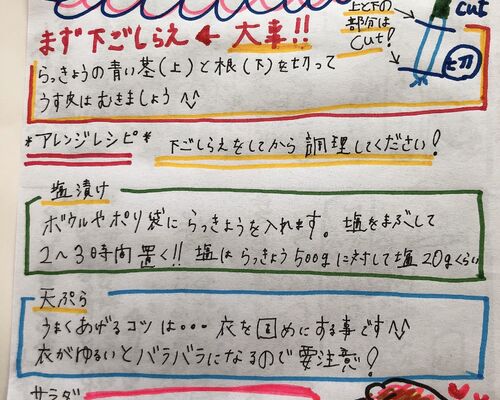 上と下の
部分は
cut!
cut
まず下ごしらえ ← 大事!!
らっきょうの青い茎(上)と根(下)を切って
うす皮はむきましょう
*アレンジレシピ*
下ごしらえをしてから調理してください!
塩漬け
ボウルやポリ袋にらっきょうを入れます。塩をまぶして
2〜3時間置く!! 塩はらっきょう500gに対して塩20gくらい
天ぷら
うまくあげるコツは・・・衣を固めにする事です
衣がゆるいとバラバラになるので要注意!
サラダ